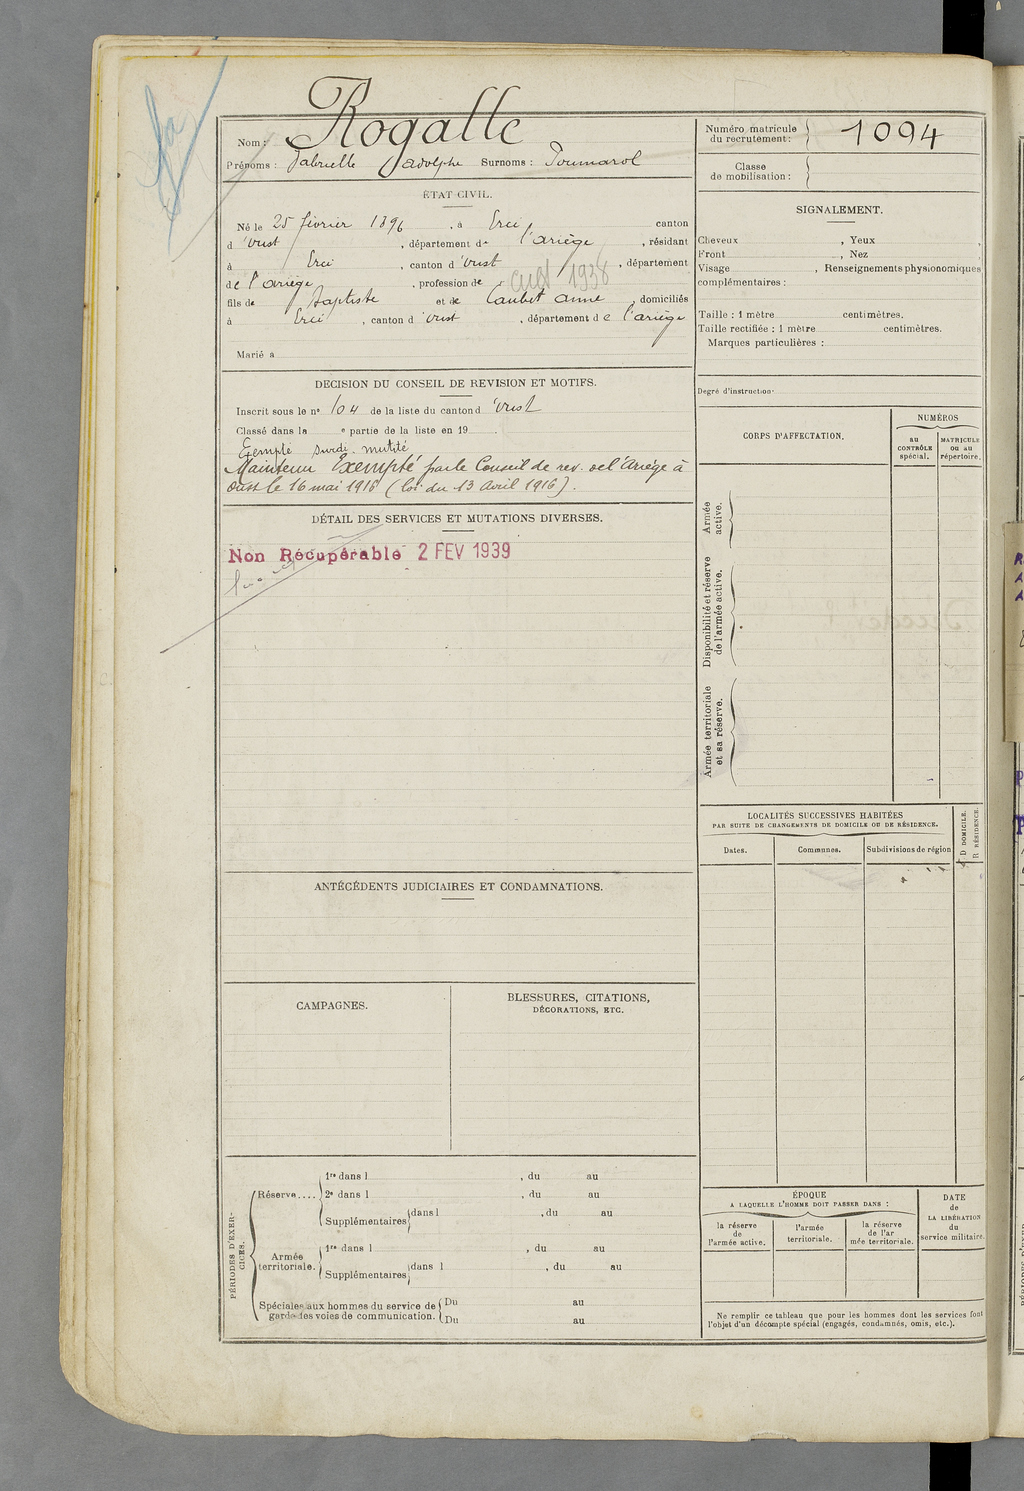 Nom : Rogalle
Prénoms : Gabrielle Adolphe Surnoms : Poumarol
ÉTAT CIVIL.
Né le 25 février 1896, à Ercé, canton
d'Oust, département de l'Ariège, résidant
à Ercé, canton d'Oust, département
de l'Ariège, profession de cult 1938
fils de Baptiste et de Caubet Anne, domiciliés
à Ercé, canton d'Oust, département de l'Ariège
Marié à
DECISION DU CONSEIL DE REVISION ET MOTIFS.
Inscrit sous le n° 104 de la liste du canton d'Oust
Classé dans la e partie de la liste en 19
Exempté surdi-mutité
Maintenu Exempté par le Conseil de rev. de l'Ariège à
Oust le 16 mai 1916 (loi du 13 Avril 1916).
DÉTAIL DES SERVICES ET MUTATIONS DIVERSES.
Non Récupérable 2 FEV 1939
ANTÉCÉDENTS JUDICIAIRES ET CONDAMNATIONS.
CAMPAGNES.
BLESSURES, CITATIONS,
DÉCORATIONS, ETC.
PÉRIODES D'EXERCICES.
Réserve....
1re dans l , du au
2e dans l , du au
Supplémentaires dans l , du au
Armée
territoriale.
1re dans l , du au
Supplémentaires dans l , du au
Spéciales aux hommes du service de
garde des voies de communication.
Du au
Du au
Numéro matricule
du recrutement : 1094
Classe
de mobilisation :
SIGNALEMENT.
Cheveux , Yeux ,
Front , Nez
Visage , Renseignements physionomiques
complémentaires :
Taille : 1 mètre centimètres.
Taille rectifiée : 1 mètre centimètres.
Marques particulières :
Degré d'instruction.
CORPS D'AFFECTATION.
NUMÉROS
au
CONTRÔLE
spécial.
MATRICULE
ou au
répertoire.
Armée
active.
Disponibilité et réserve
de l'armée active.
Armée territoriale
et sa réserve.
LOCALITÉS SUCCESSIVES HABITÉES
PAR SUITE DE CHANGEMENTS DE DOMICILE OU DE RÉSIDENCE.
Dates.
Communes.
Subdivisions de région
D DOMICILE.
R RÉSIDENCE.
ÉPOQUE
A LAQUELLE L'HOMME DOIT PASSER DANS :
la réserve
de
l'armée active.
l'armée
territoriale.
la réserve
de l'ar
mée territoriale.
DATE
de
LA LIBÉRATION
du
service militaire.
Ne remplir ce tableau que pour les hommes dont les services font
l'objet d'un décompte spécial (engagés, condamnés, omis, etc.).